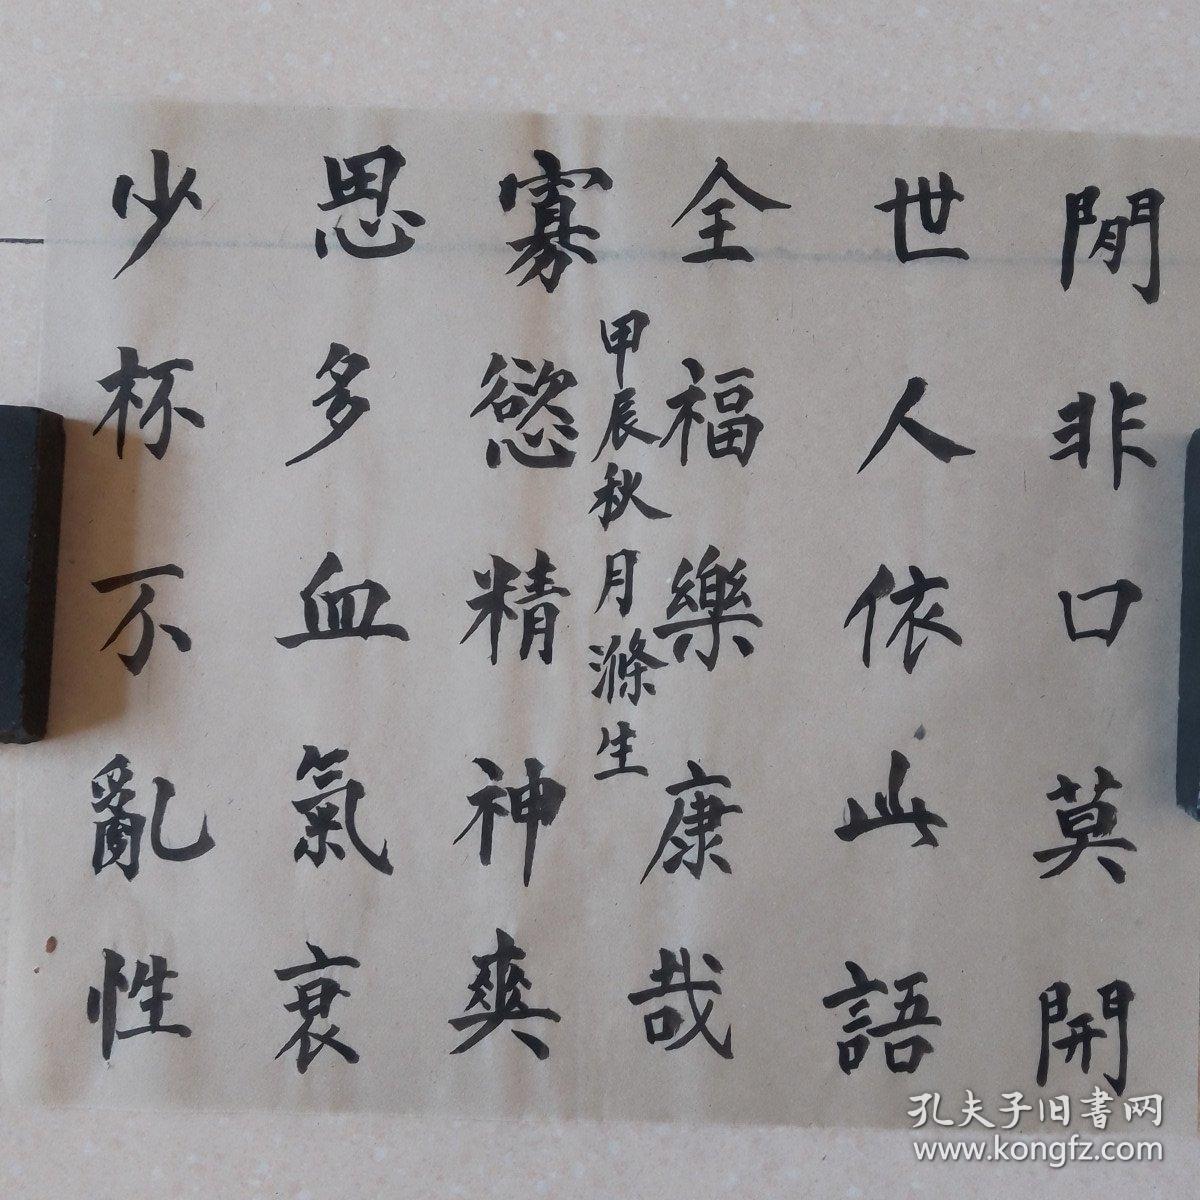 閒非口莫開
世人依此語
全福樂康哉
甲辰秋月滌生
寡慾精神爽
思多血氣衰
少杯不亂性
孔夫子旧書网
www.kongfz.com